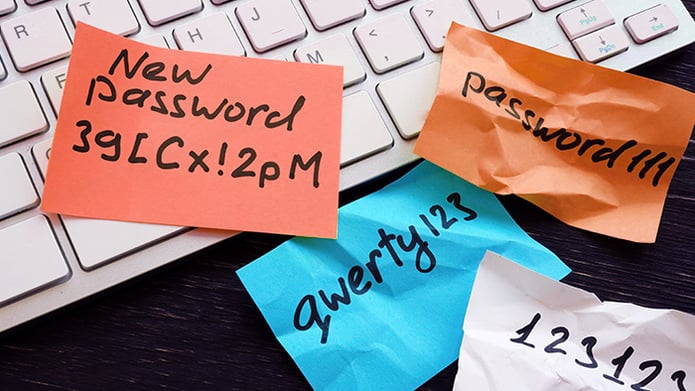 New
password
3g[Cx!2pM
password111
qwerty123
123123
R
T
H
J
M
<
,
PgUp
PgDn
End